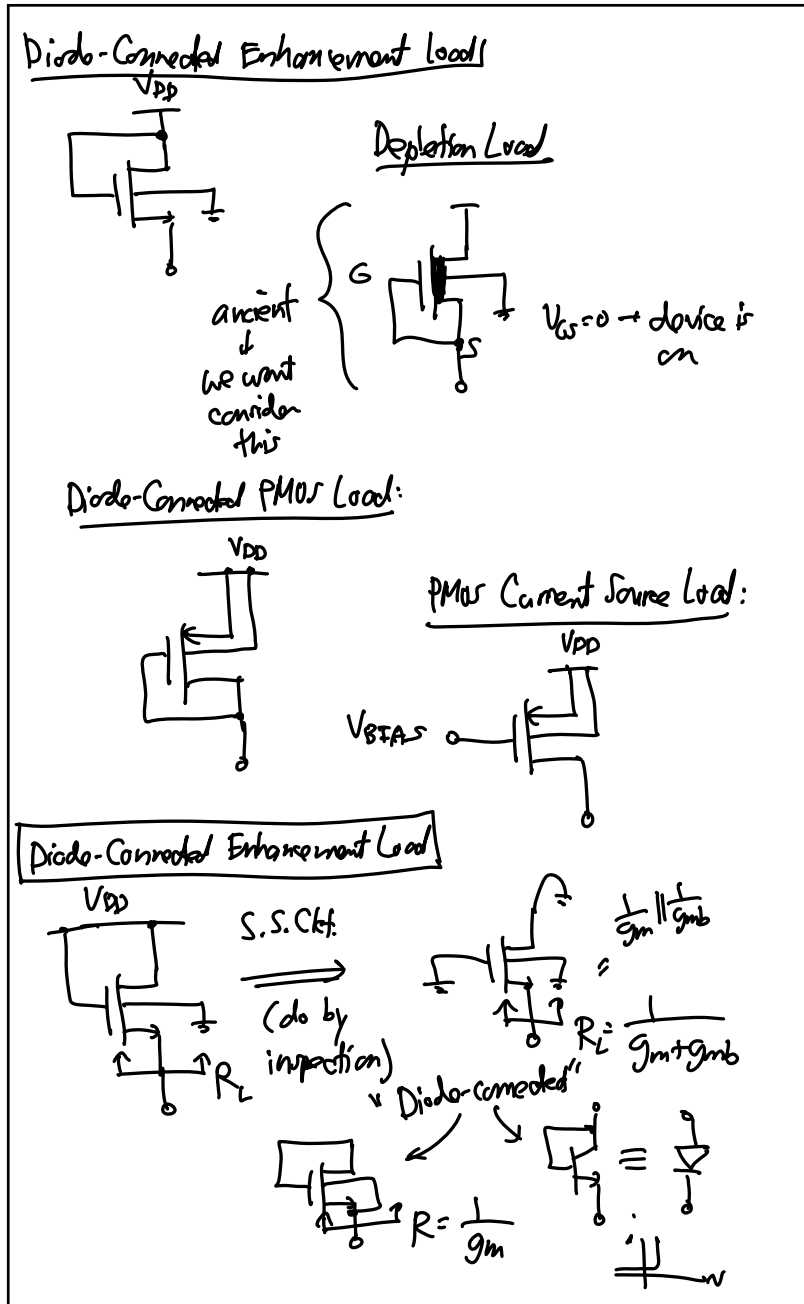 Diode-Connected Enhancement Load
VDD
Depletion Load
G
S
ancient
↓
we won't
consider
this
VGS=0 → device is
on
Diode-Connected PMOS Load:
VDD
PMOS Current Source Load:
VDD
VBIAS
Diode-Connected Enhancement Load
VDD
RL
S.S. Ckt.
(do by
inspection)
1/gm || 1/gmb
RL = 1/(gm+gmb)
"Diode-connected"
R = 1/gm
≡
i
v